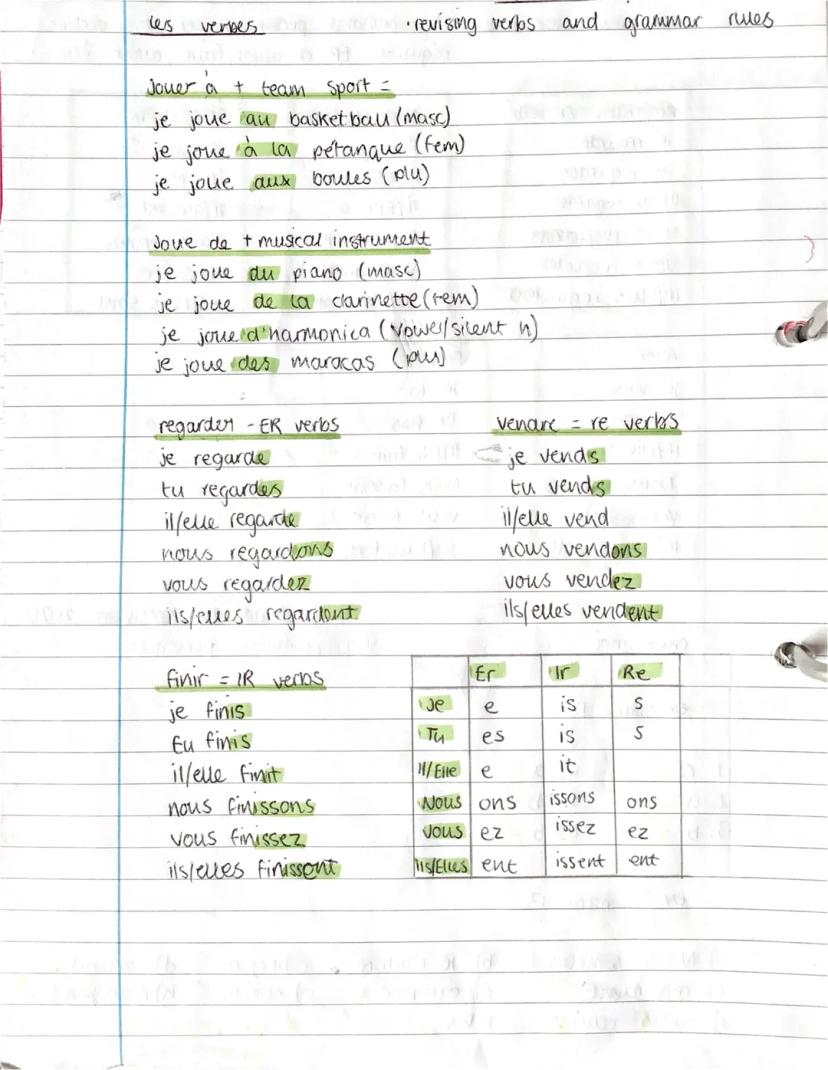 les verbes
· revising verbs and grammar rules
Jouer à + team sport =
je joue au basketball (masc)
je joue à la pétanque (fem)
je joue aux boules (plu)
Joue de + musical instrument
je joue du piano (masc)
je joue de la clarinette (fem)
je joue d'harmonica (vowel/silent h)
je joue des maracas (plu)
regarder - ER verbs
je regarde
tu regardes
il/elle regarde
nous regardons
vous regardez
ils/elles regardent
vendre = re verbs
je vends
tu vends
il/elle vend
nous vendons
vous vendez
ils/elles vendent
finir = IR verbs
je finis
tu finis
il/elle finit
nous finissons
vous finissez
ils/elles finissent
Er Ir Re
Je e is s
Tu es is s
Il/Elle e it
Nous ons issons ons
Vous ez issez ez
Ils/Elles ent issent ent